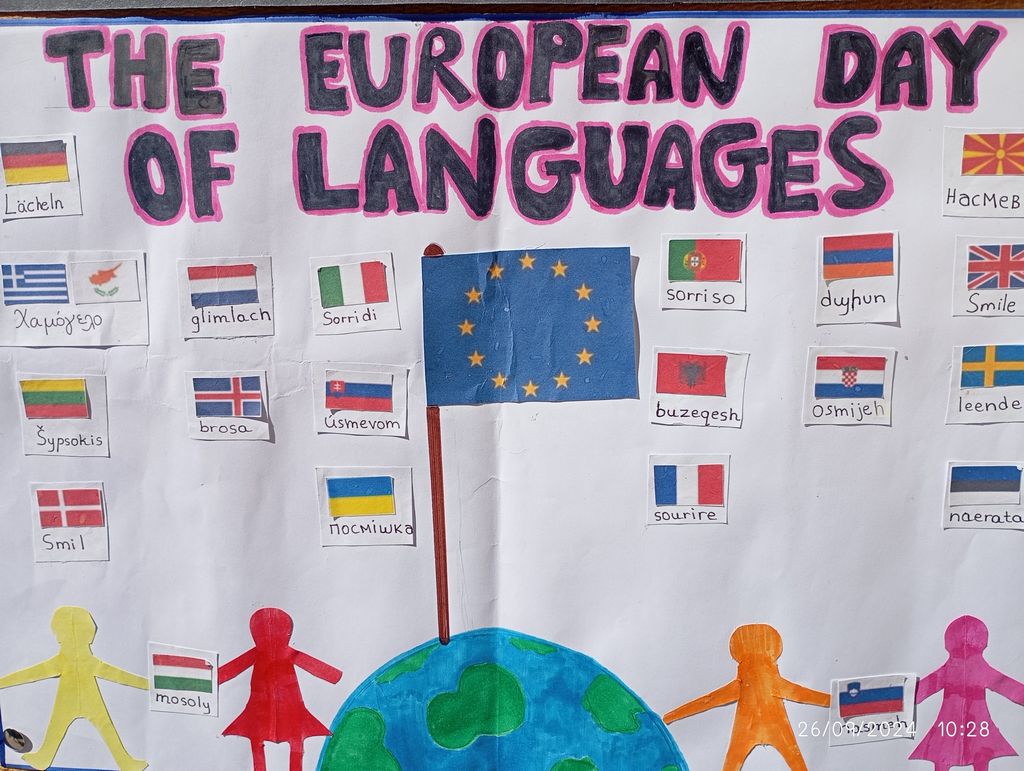 THE EUROPEAN DAY
OF LANGUAGES
Lächeln
Насмев
Χαμόγελο
glimlach
Sorridi
sorriso
ժպիտ
Smile
Šypsokis
brosa
úsmevom
buzeqesh
Osmijeh
leende
Smil
посмішка
sourire
naerata
mosoly
nasmeh
26/09/2024 10:28